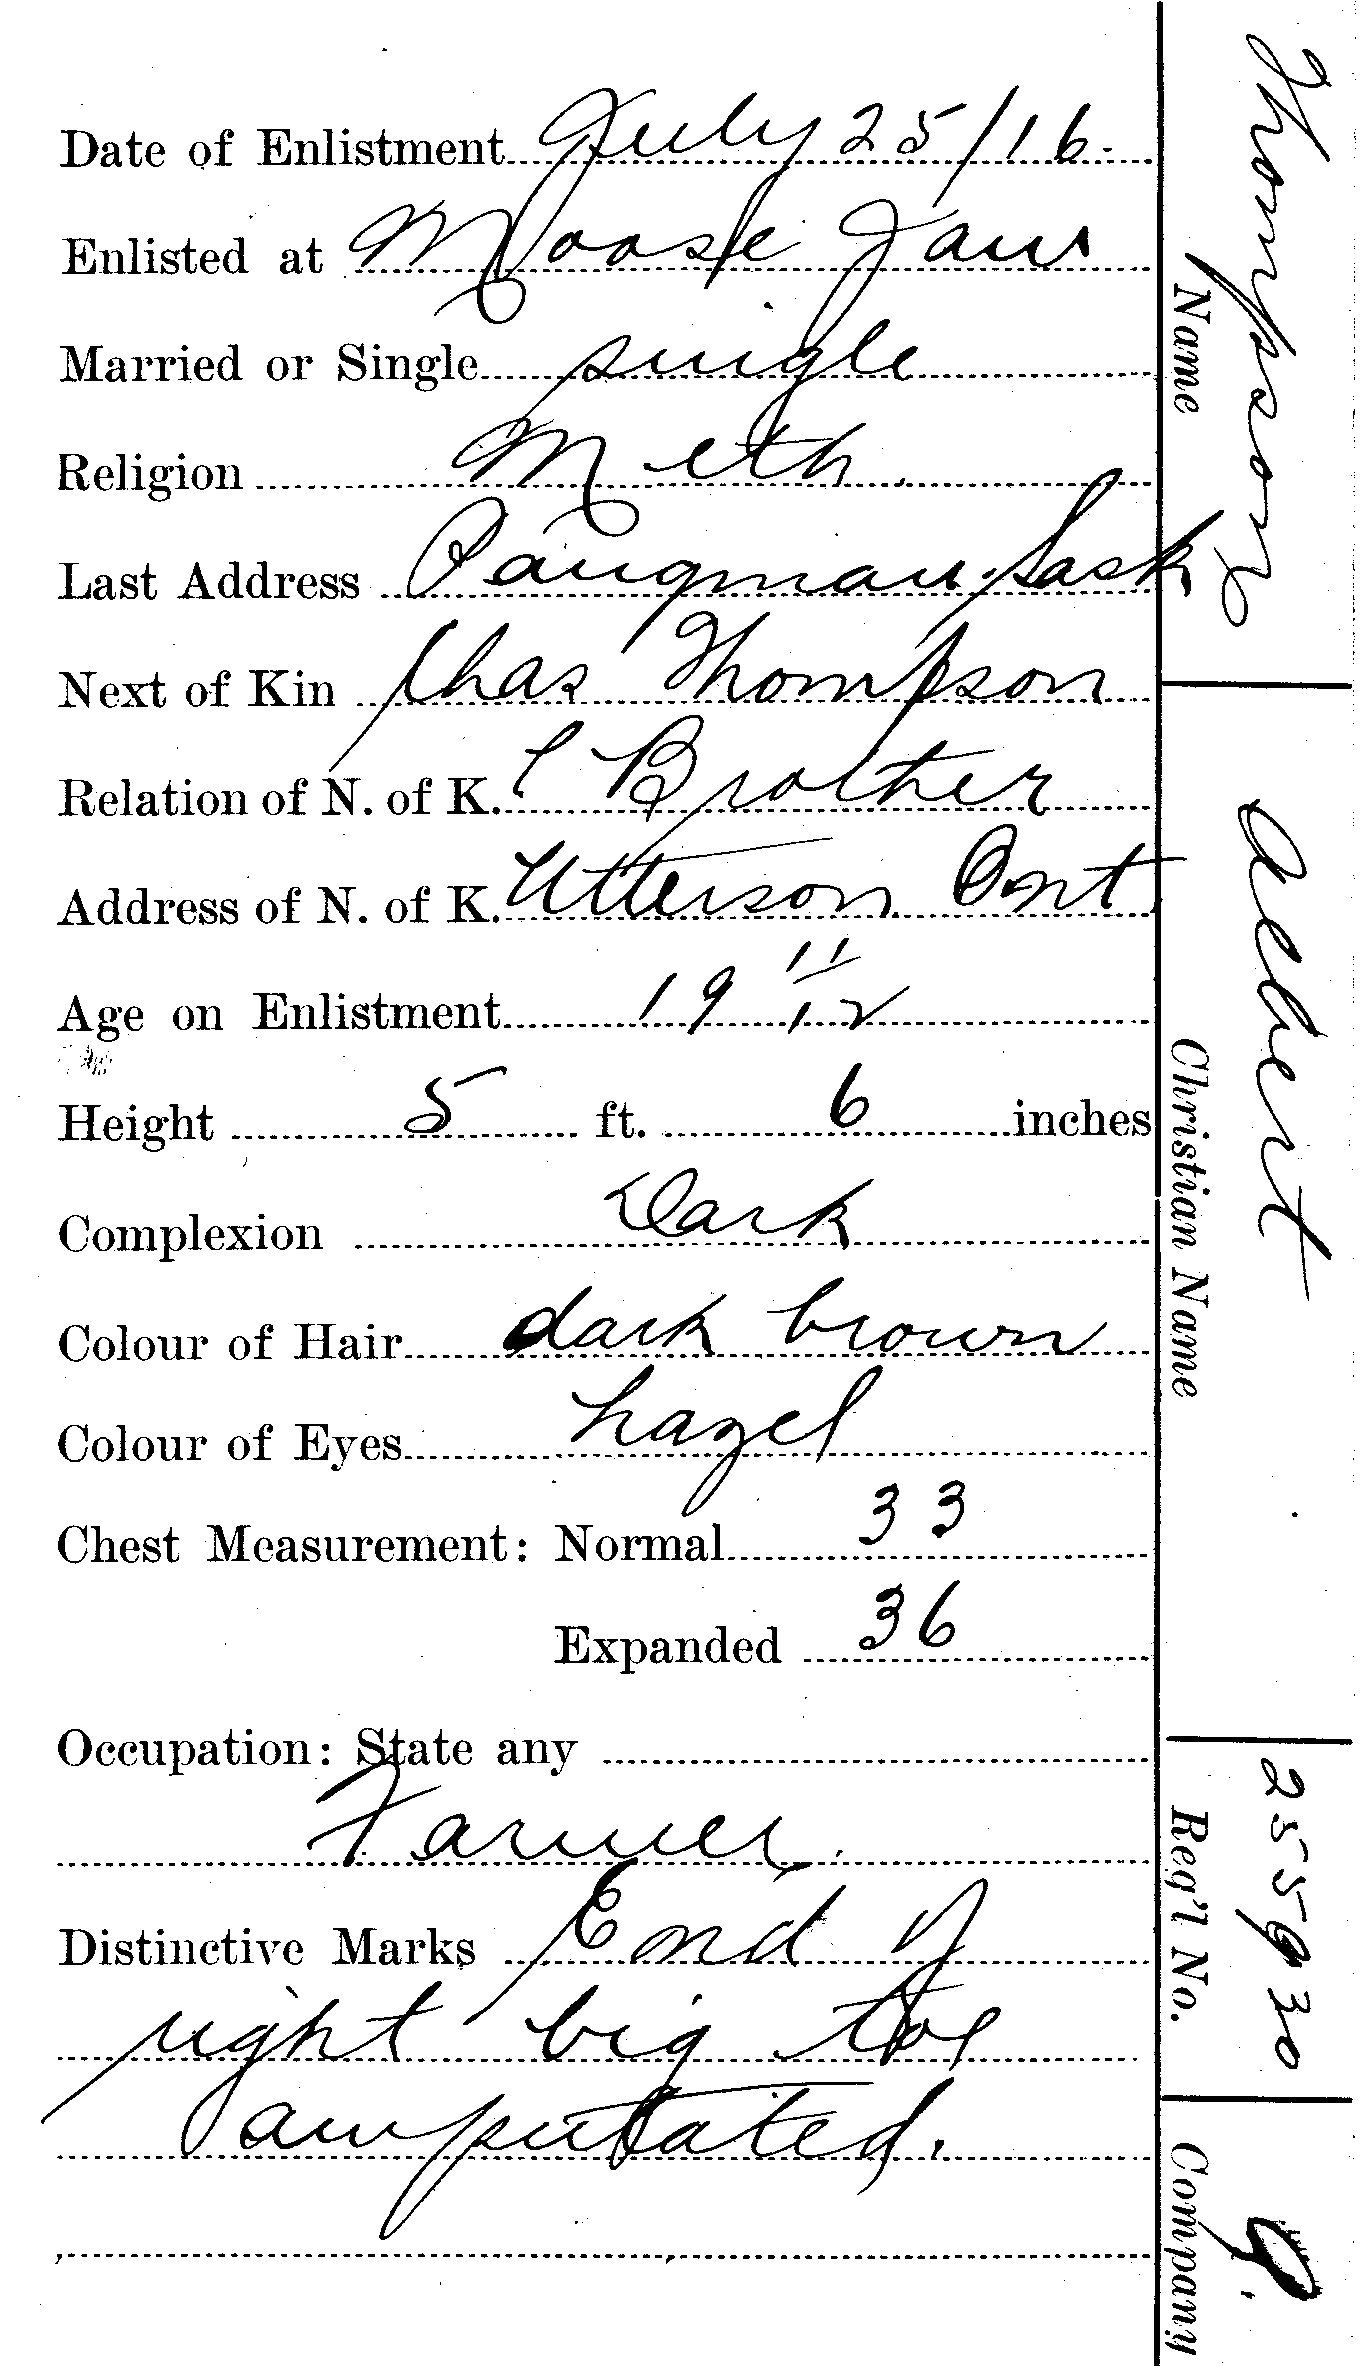 Date of Enlistment July 25/16.
Enlisted at Moose Jaw
Married or Single single
Religion Meth.
Last Address Pangman. Sask
Next of Kin Chas Thompson
Relation of N. of K. Brother
Address of N. of K. Utterson Ont
Age on Enlistment 19 11/12
Height 5 ft. 6 inches
Complexion Dark
Colour of Hair dark brown
Colour of Eyes hazel
Chest Measurement: Normal 33
Expanded 36
Occupation: State any
Farmer.
Distinctive Marks End of
right big toe
amputated.
Thompson
Name
Albert
Christian Name
255930
Reg'l No.
Company